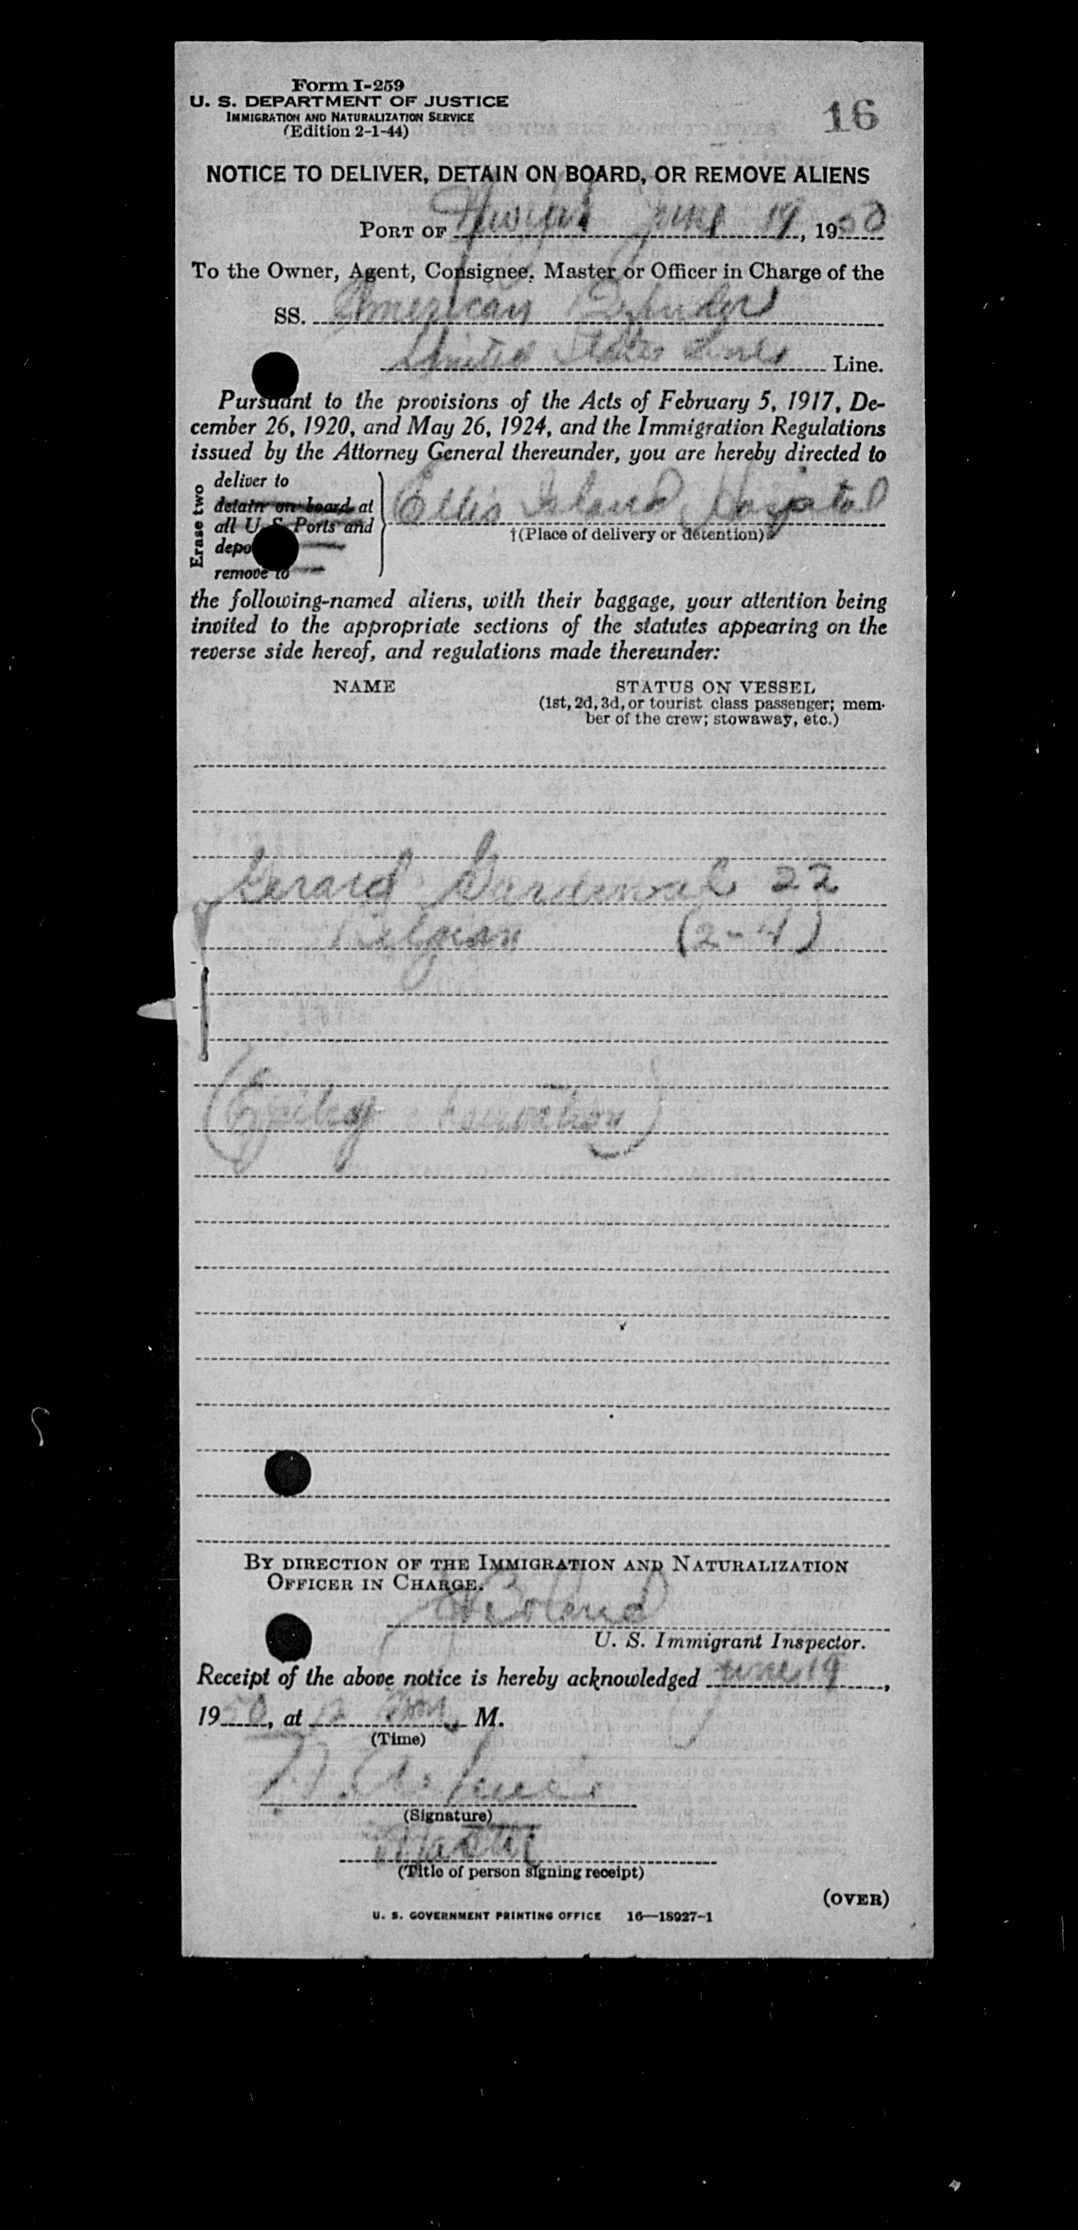 Form I-259
U. S. DEPARTMENT OF JUSTICE
IMMIGRATION AND NATURALIZATION SERVICE
(Edition 2-1-44)
16
NOTICE TO DELIVER, DETAIN ON BOARD, OR REMOVE ALIENS
PORT OF June 19, 1950
To the Owner, Agent, Consignee, Master or Officer in Charge of the
SS. American
United States Lines Line.
Pursuant to the provisions of the Acts of February 5, 1917, De-
cember 26, 1920, and May 26, 1924, and the Immigration Regulations
issued by the Attorney General thereunder, you are hereby directed to
Erase two
deliver to
detain on board at
all U. S. Ports and
depo
remove to
Ellis Island Hospital
†(Place of delivery or detention)
the following-named aliens, with their baggage, your attention being
invited to the appropriate sections of the statutes appearing on the
reverse side hereof, and regulations made thereunder:
NAME
STATUS ON VESSEL
(1st, 2d, 3d, or tourist class passenger; mem-
ber of the crew; stowaway, etc.)
Gerard Gardewal 22
Belgian (2-4)
BY DIRECTION OF THE IMMIGRATION AND NATURALIZATION
OFFICER IN CHARGE.
U. S. Immigrant Inspector.
Receipt of the above notice is hereby acknowledged June 19,
1950, at 12 noon M.
(Time)
(Signature)
Master
(Title of person signing receipt)
(OVER)
U. S. GOVERNMENT PRINTING OFFICE 16—18927-1